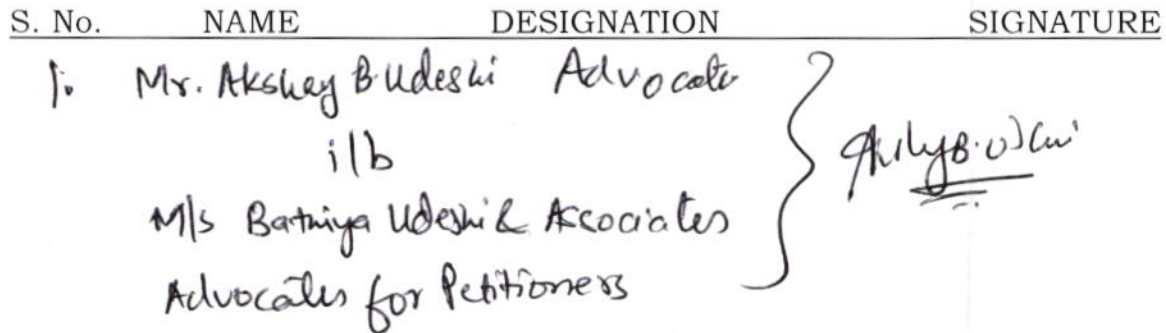 S. No. NAME DESIGNATION SIGNATURE
1. Mr. Akshay B. Udeshi Advocate
i/b
M/s Udeshi & Associates
Advocates for Petitioners